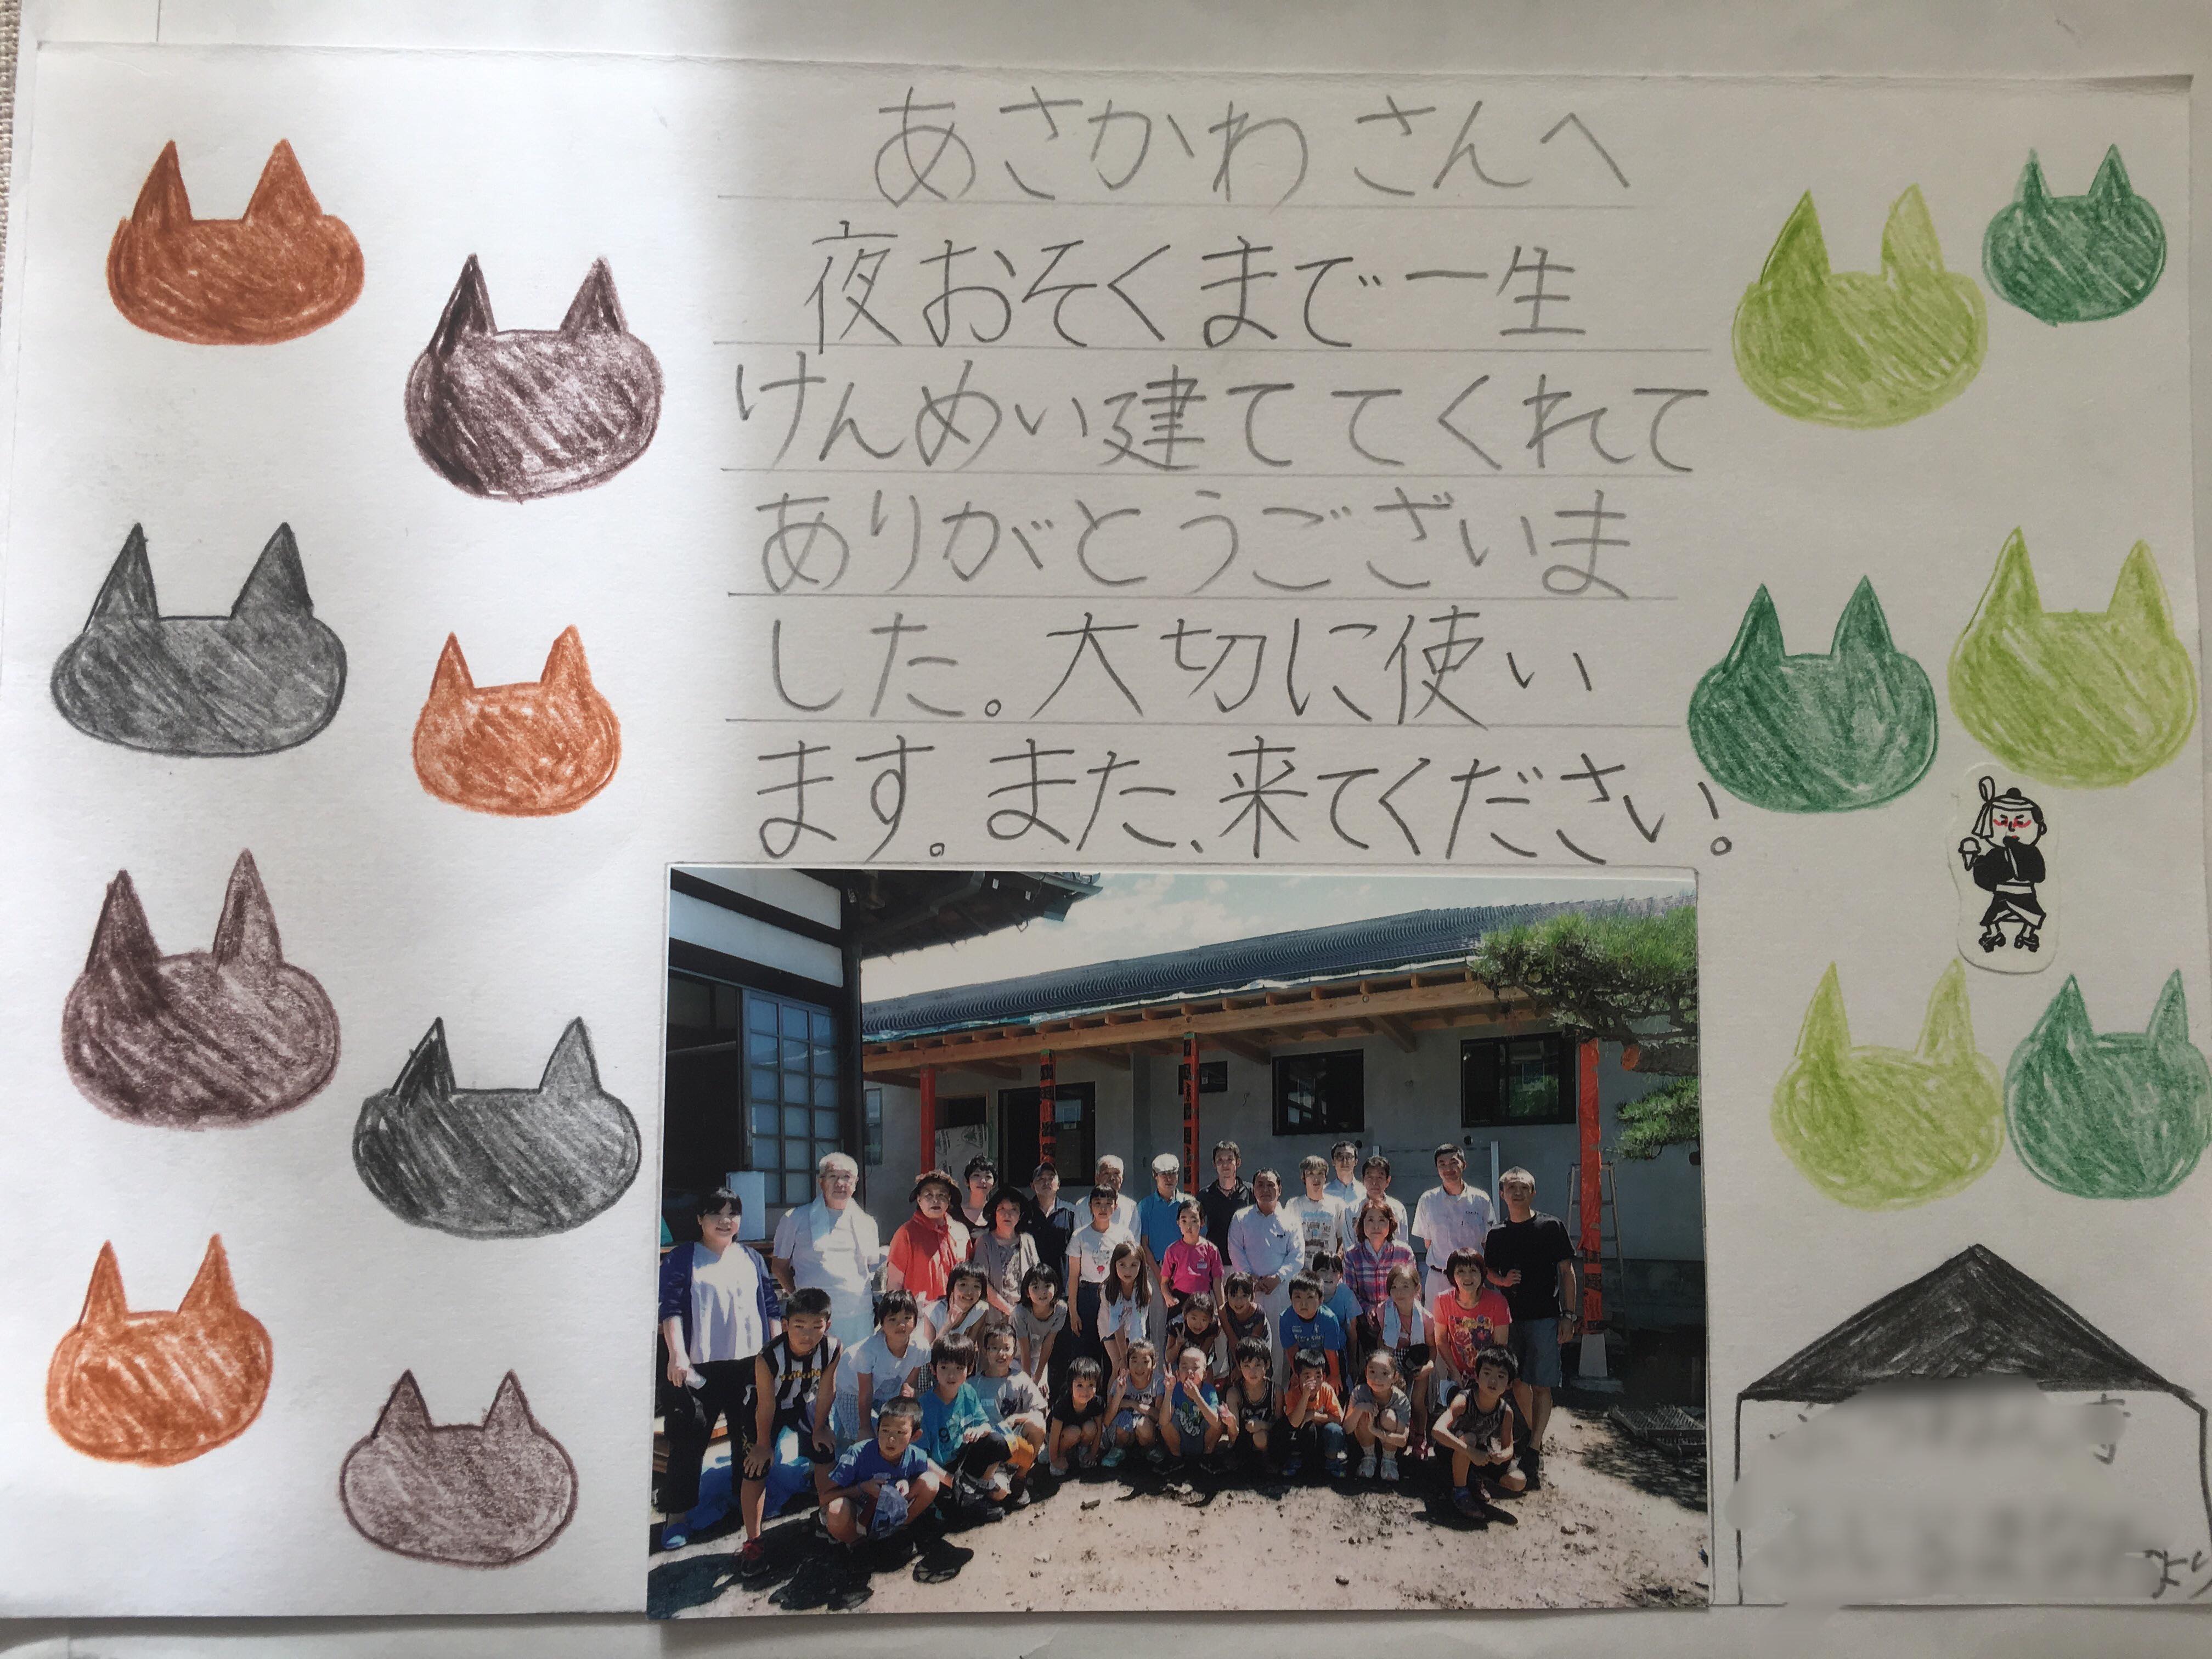 あさかわさんへ
夜おそくまで一生
けんめい建ててくれて
ありがとうございま
した。大切に使い
ます。また、来てください!
より